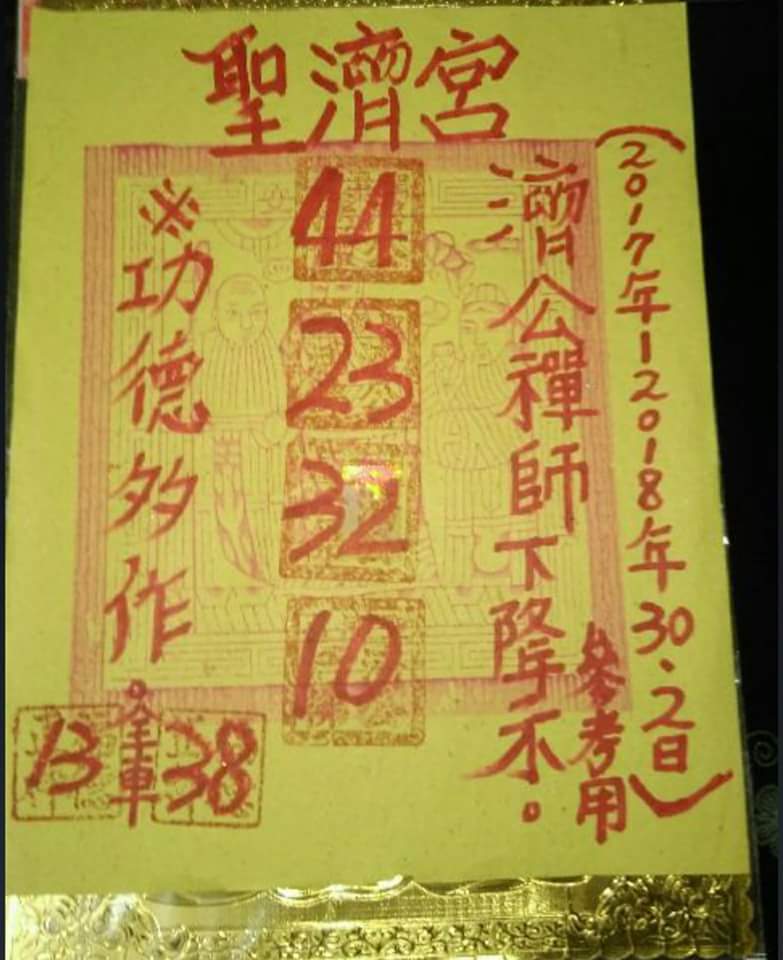 聖濟宮
(2017年-2018年30、2日)
參考用
濟公禪師下降示。
44
23
32
10
※功德多作。
13 全車 38